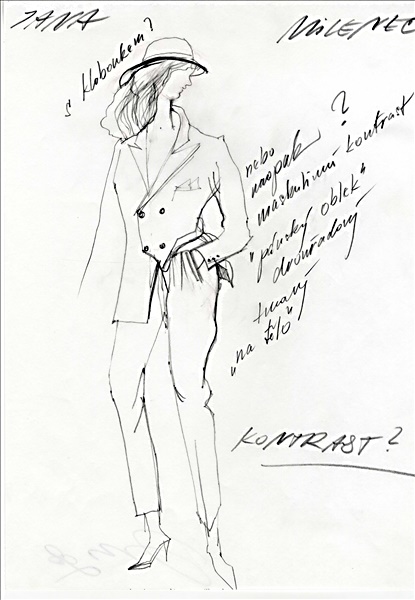 JANA
MILENEC
s kloboukem?
nebo
naopak ?
maskulinní kontrast
"pánský oblek"
dvouřadový
tmavý
"na tělo"
KONTRAST?